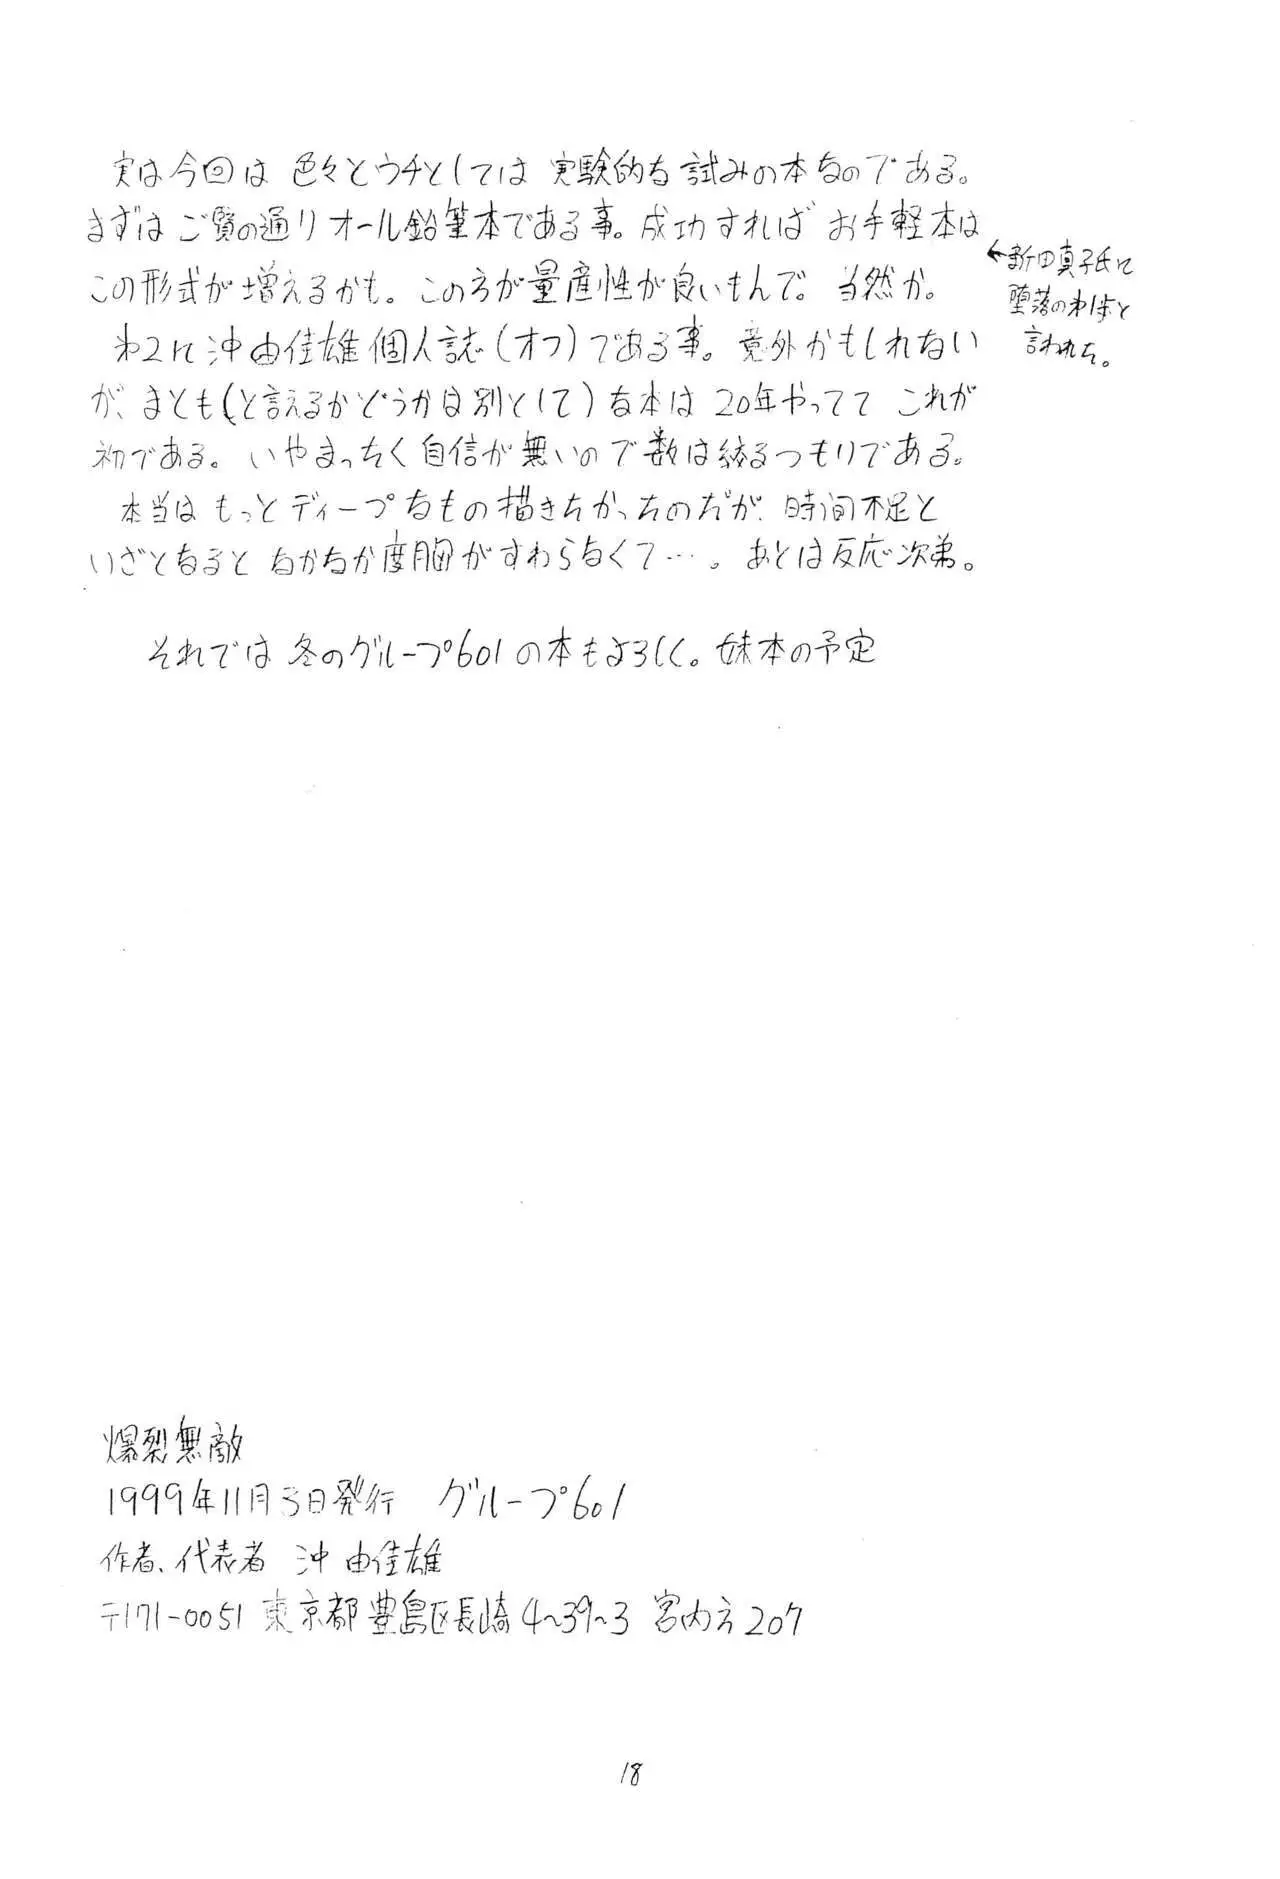 実は今回は 色々とウチとしては 実験的な試みの本なのである。
まずは ご覧の通り オール鉛筆本である事。成功すれば お手軽本は
この形式が増えるかも。この方が量産性が良いもんで。当然か。
←新田真子氏に
堕落の第1歩と
言われた。
第2に 沖由佳雄個人誌(オフ)である事。意外かもしれない
が、まとも(と言えるかどうかは別として)な本は 20年やってて これが
初である。いやまったく自信が無いので数は絞るつもりである。
本当は もっとディープなもの描きたかったのだが、時間不足と
いざとなると なかなか度胸がすわらなくて…。あとは反応次第。
それでは 冬のグループ601の本もよろしく。妹本の予定
爆裂無敵
1999年11月3日発行 グループ601
作者、代表者 沖 由佳雄
〒171-0051 東京都豊島区長崎4~39~3 宮内方207
18